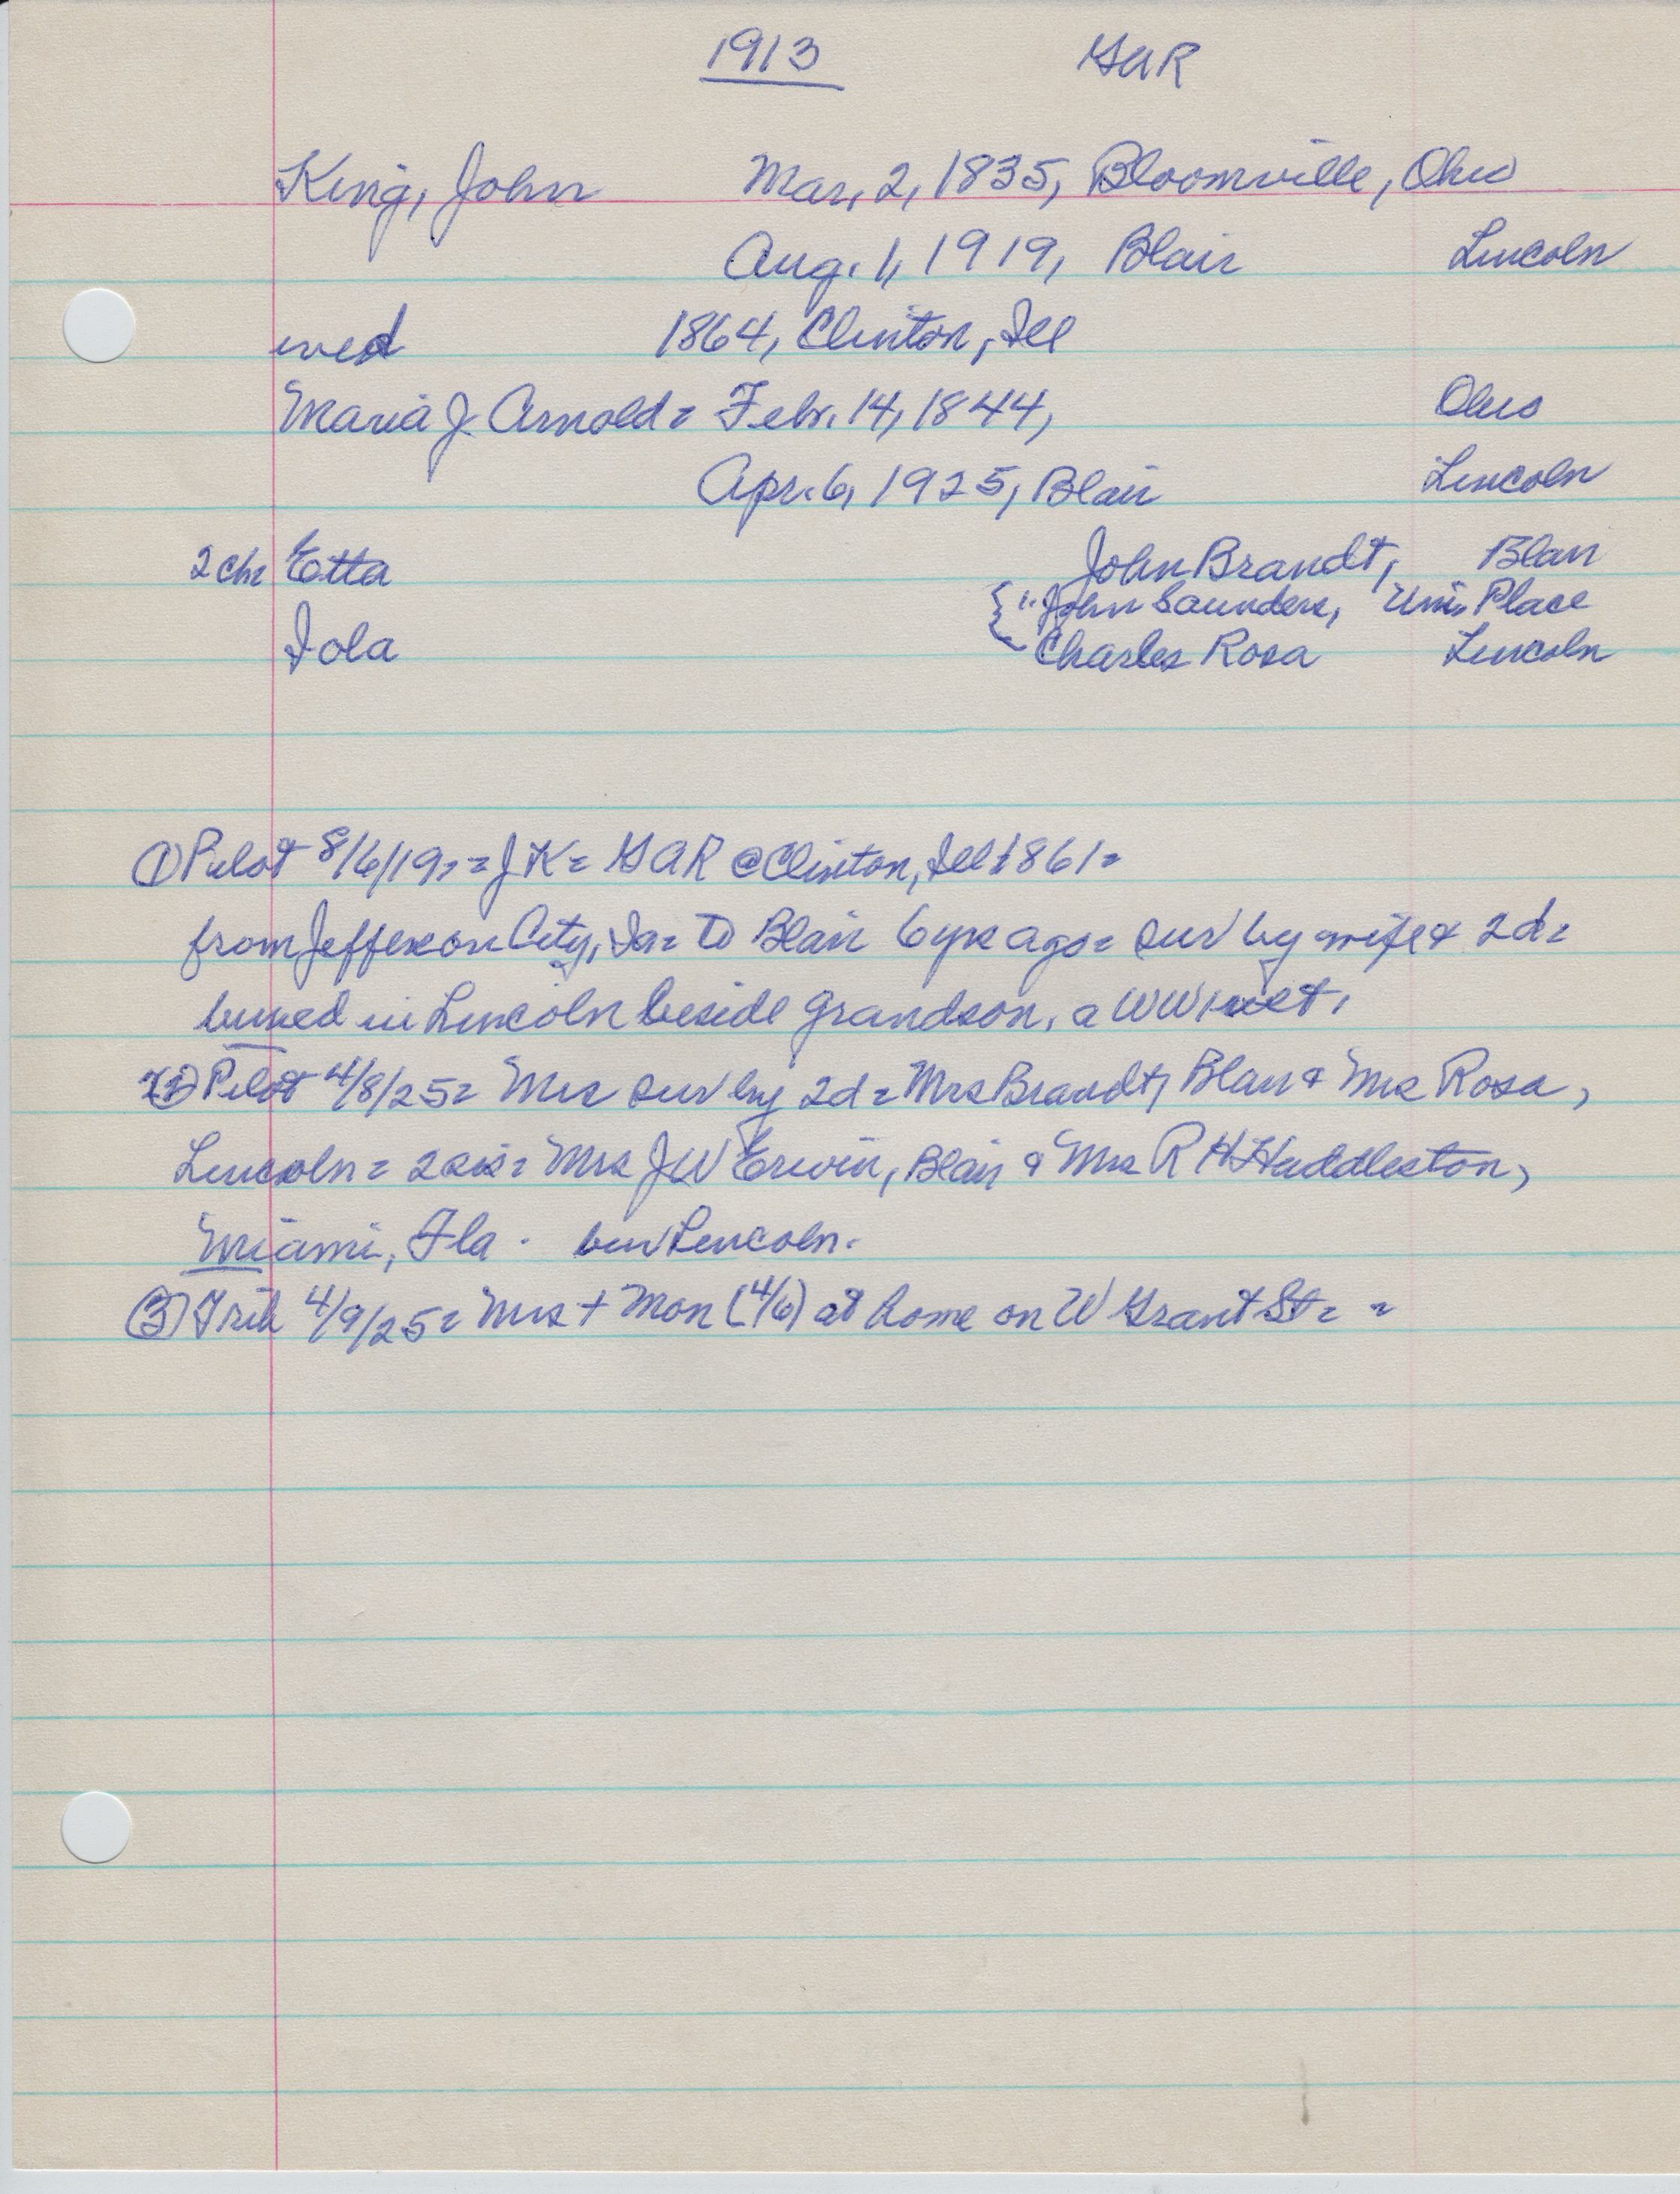 1913 GAR
King, John Mar. 2, 1835, Bloomville, Ohio
Aug. 1, 1919, Blair Lincoln
wed 1864, Clinton, Ill
Maria J. Arnold = Febr. 14, 1844, Ohio
Apr. 6, 1925, Blair Lincoln
2 ch= Etta John Brandt, Blair
{ " John Saunders, Uni. Place
Iola Charles Rosa Lincoln
① Pilot 8/6/19 = JK = GAR @ Clinton, Ill 1861 =
from Jefferson City, Ia = to Blair 6 yrs ago = sur by wife & 2 d =
buried in Lincoln beside grandson, a WW1 vet.
② Pilot 4/8/25 = Mrs sur by 2d = Mrs Brandt, Blair & Mrs Rosa,
Lincoln = 2 sis = Mrs JW Erwin, Blair & Mrs R H Huddleston,
Miami, Fla. bur Lincoln.
③ Trib 4/9/25 = Mrs + Mon (4/6) at home on W Grant St = =